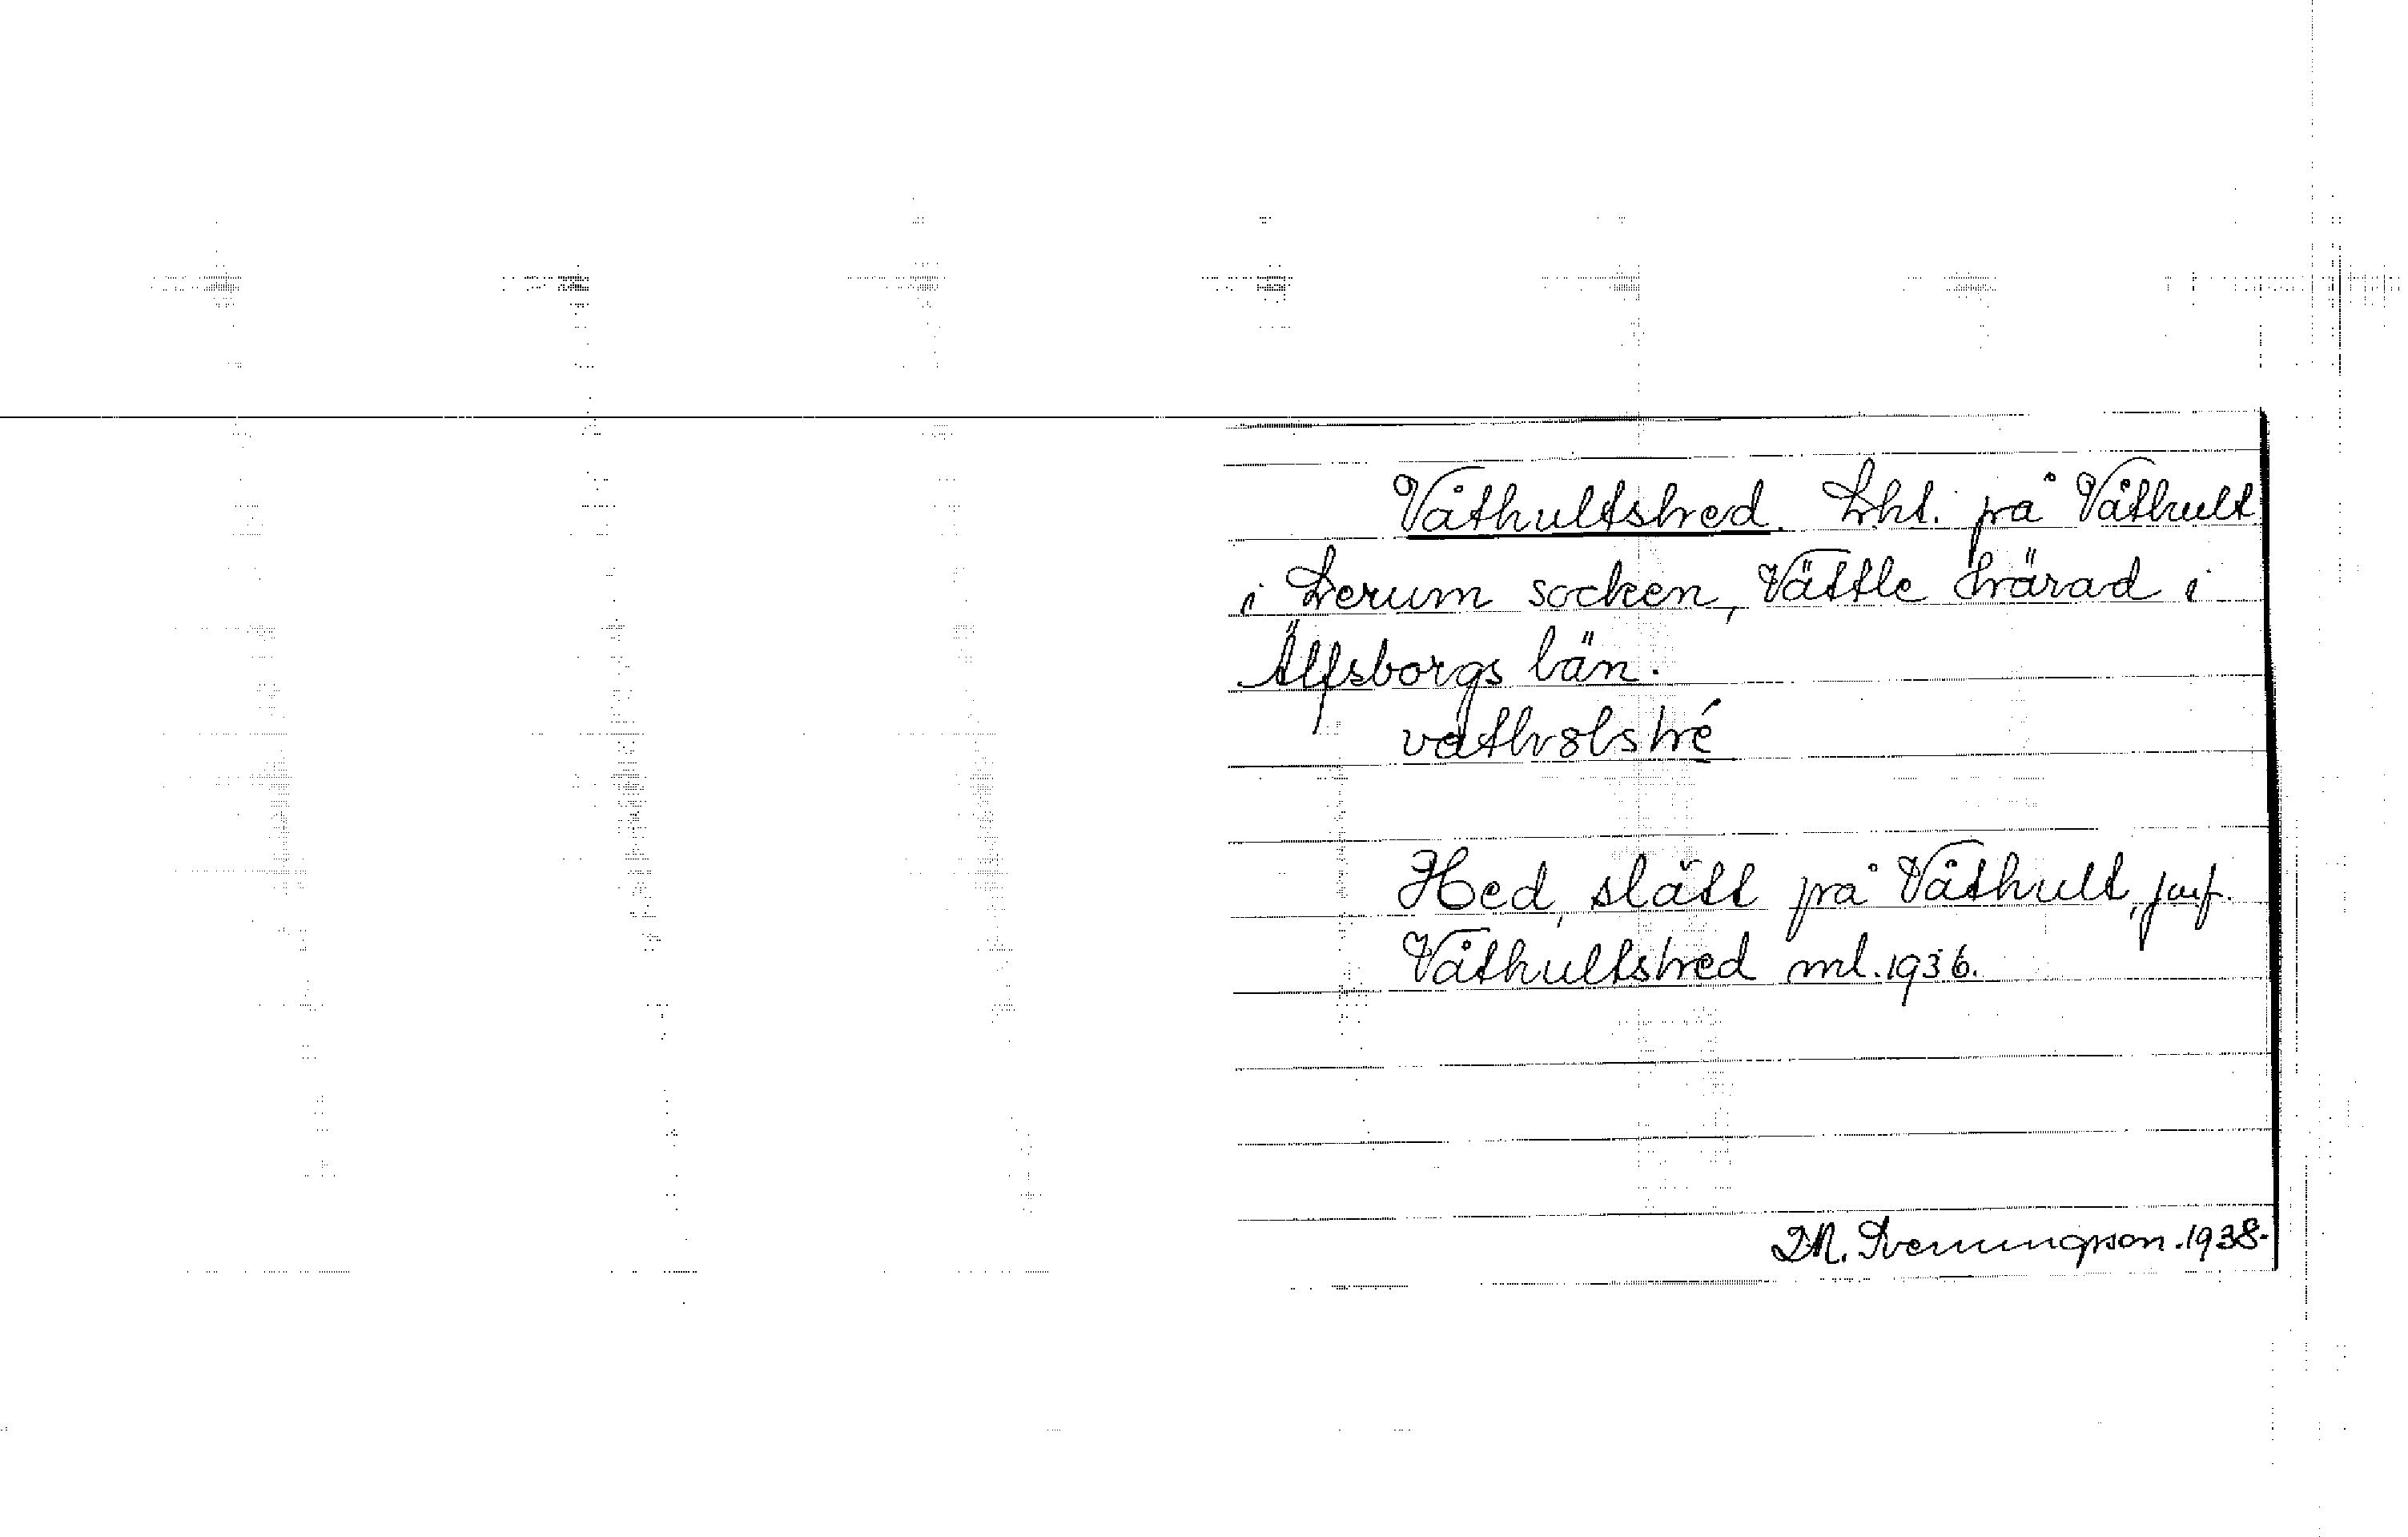 Våthultshed. Lht. på Våthult
i Lerum socken, Vättle härad i
Älfsborgs län.
Hed, slätt på Våthult, jmf.
Våthultshed ml. 1936.
D.M. Svenningson. 1938.